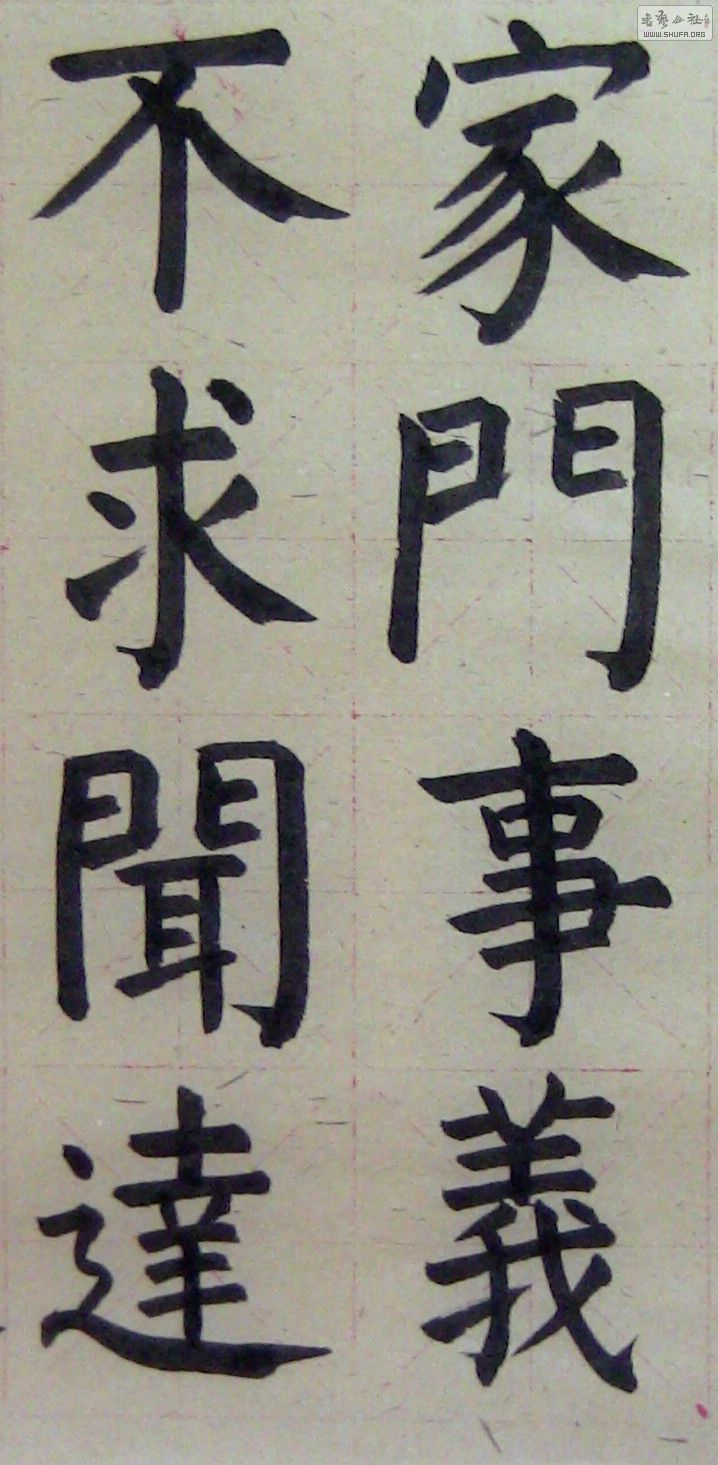 家門事義
不求聞達
書藝公社
WWW.SHUFA.ORG